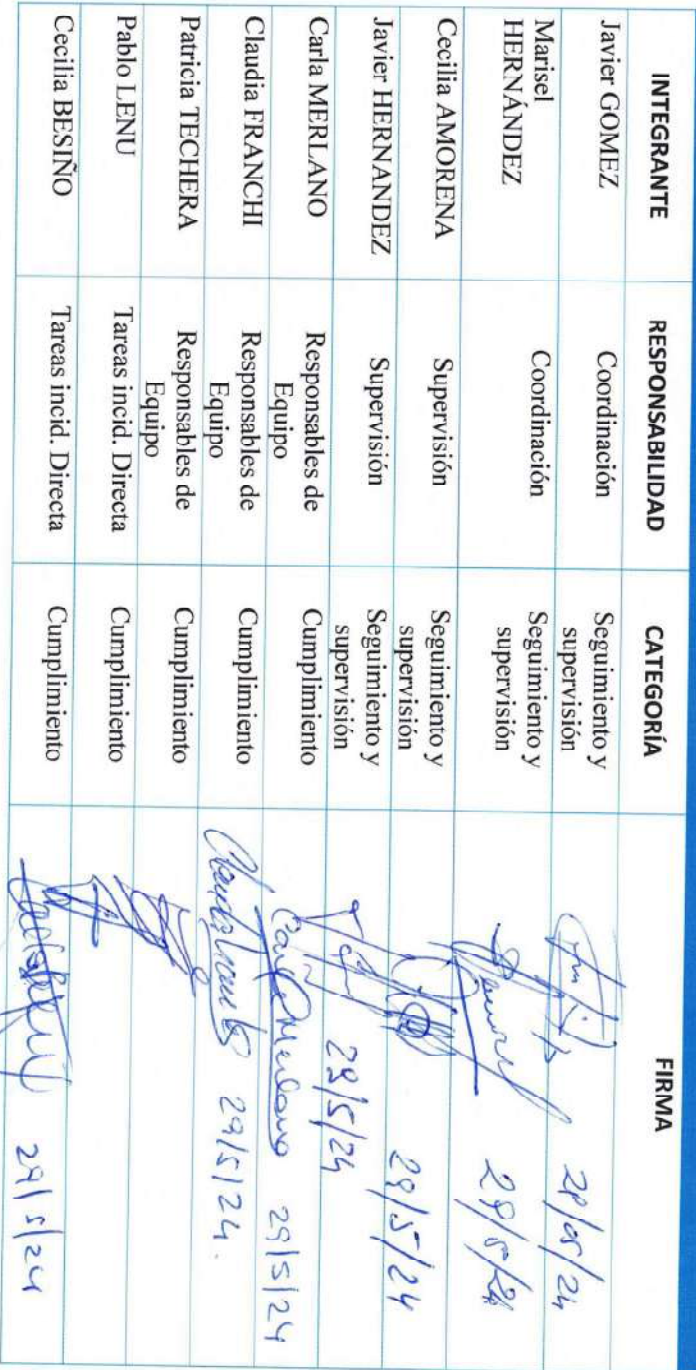 INTEGRANTE RESPONSABILIDAD CATEGORÍA FIRMA
Javier GOMEZ Coordinación Seguimiento y
supervisión
Marisel
HERNÁNDEZ Coordinación Seguimiento y
supervisión
Cecilia AMORENA Supervisión Seguimiento y
supervisión 29/5/24
Javier HERNANDEZ Supervisión Seguimiento y
supervisión 29/5/24
Carla MERLANO Responsables de
Equipo Cumplimiento Carla Merlano 29/5/24
Claudia FRANCHI Responsables de
Equipo Cumplimiento 29/5/24.
Patricia TECHERA Responsables de
Equipo Cumplimiento
Pablo LENU Tareas incid. Directa Cumplimiento
Cecilia BESIÑO Tareas incid. Directa Cumplimiento 29/5/24